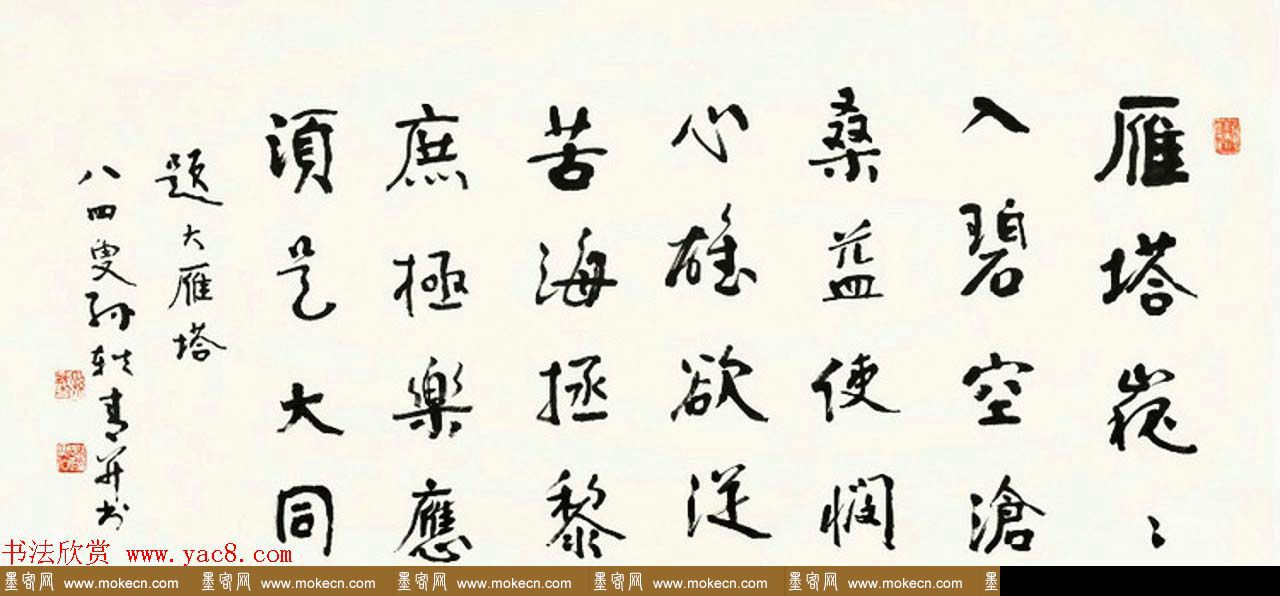 雁塔巍〻
入碧空滄
桑益使憫
心雄欲從
苦海拯黎
庶極樂應
須是大同
題大雁塔
八四叟孫軼青并书
书法欣赏 www.yac8.com
墨客网 www.mokecn.com 墨客网 www.mokecn.com 墨客网 www.mokecn.com 墨客网 www.mokecn.com 墨客网 www.mokecn.com 墨